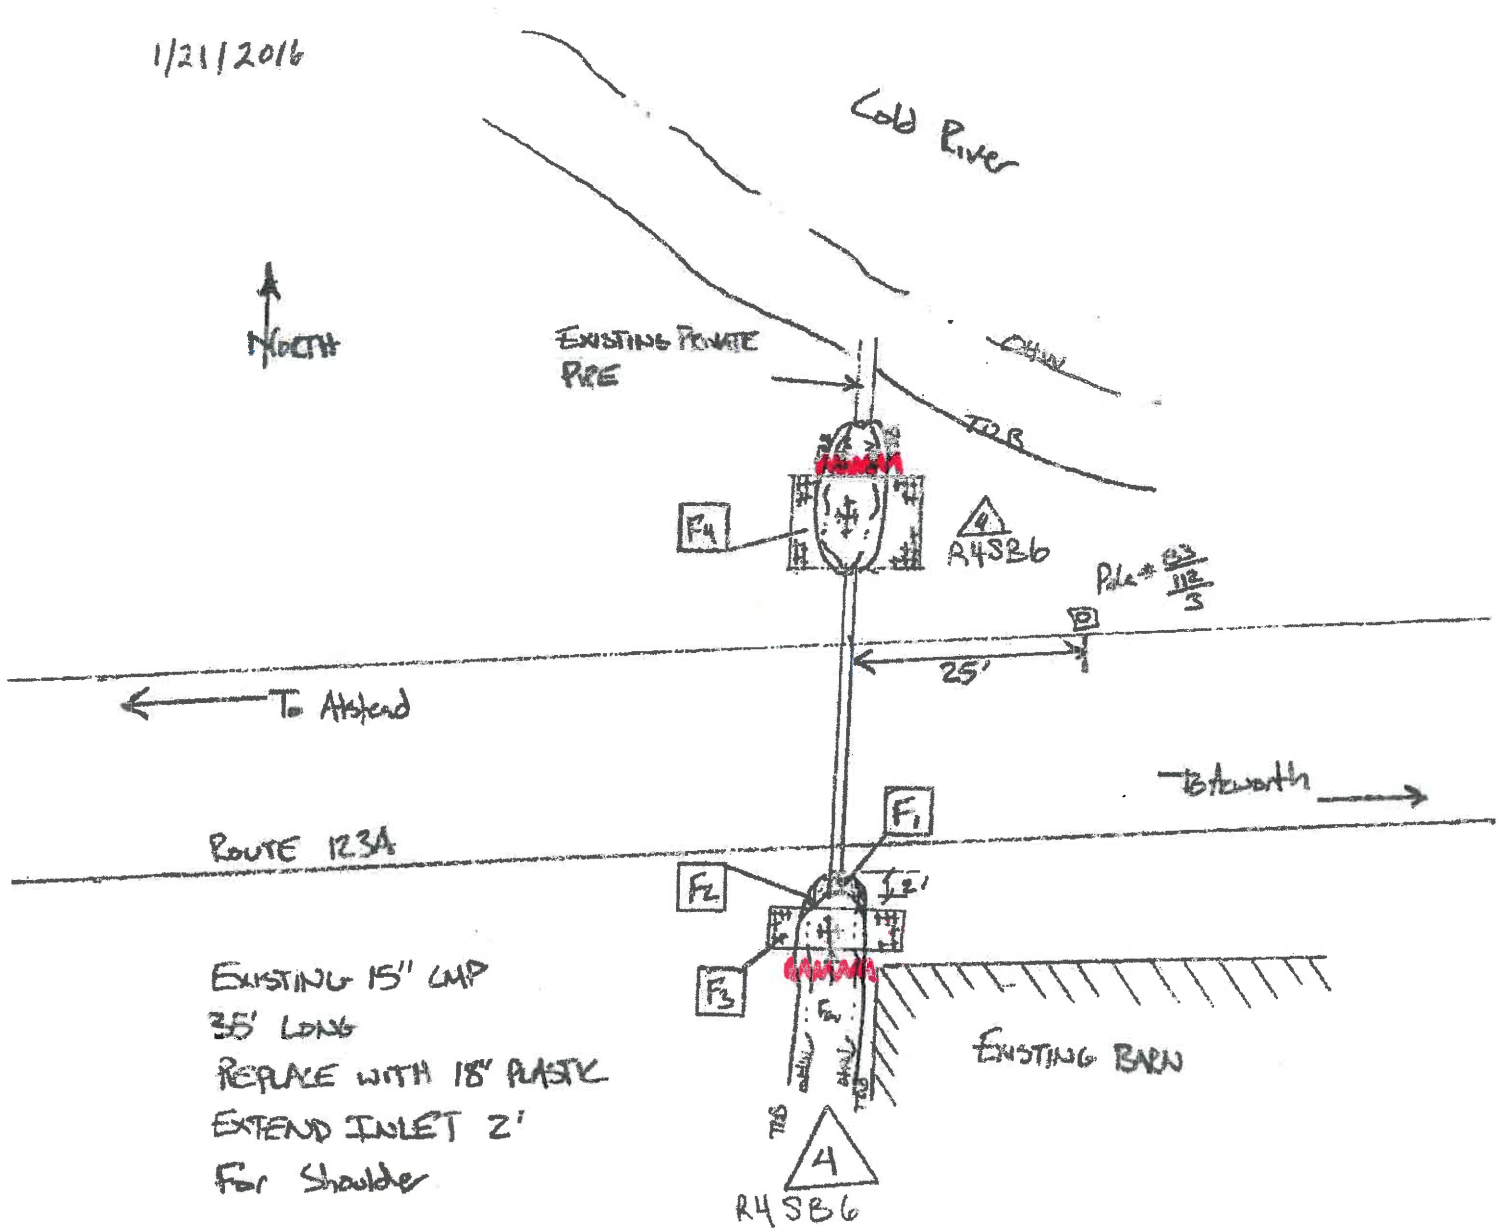 1/21/2016
Cold River
NORTH
EXISTING PRIVATE
PIPE
OHW
TOB
F4
4
R4SB6
Pole # 83
112
3
25'
To Alstead
To Acworth
F1
ROUTE 123A
F2
2'
F3
EXISTING 15" CMP
35' LONG
REPLACE WITH 18" PLASTIC
EXTEND INLET 2'
For Shoulder
EXISTING BARN
OHW
TOB
TOB
4
R4SB6